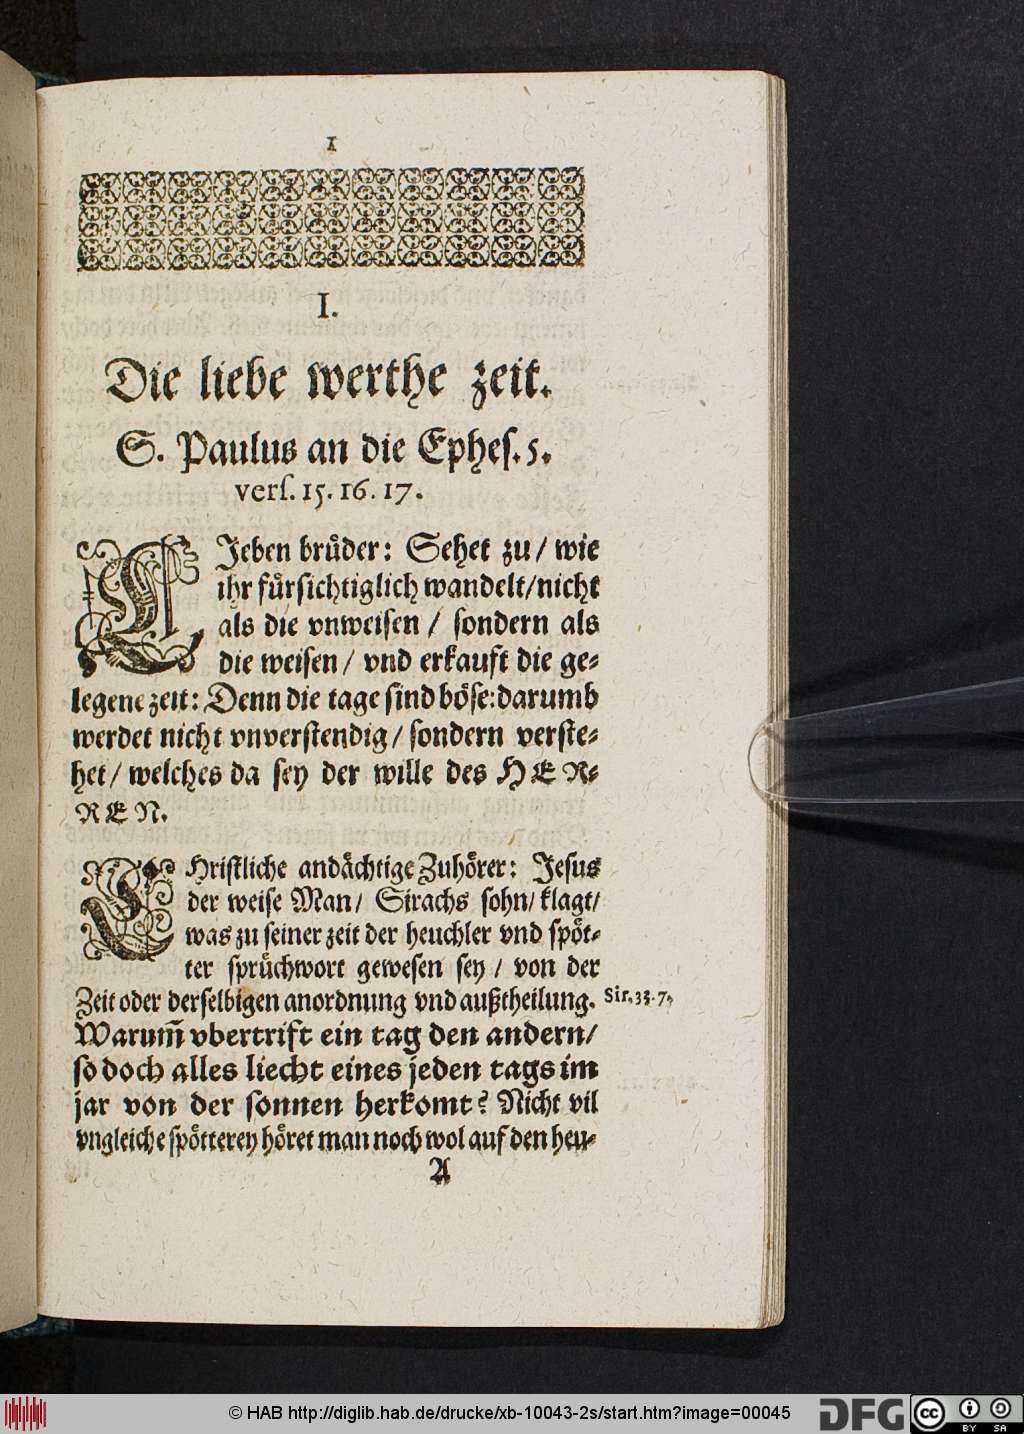 1
I.
Die liebe werthe zeit.
S. Paulus an die Ephes. 5.
vers. 15. 16. 17.
LIeben brüder: Sehet zu / wie
ihr fürsichtiglich wandelt / nicht
als die vnweisen / sondern als
die weisen / vnd erkauft die ge-
legene zeit: Denn die tage sind böse: darumb
werdet nicht vnverstendig / sondern verste-
het / welches da sey der wille des HER-
REN.
CHristliche andächtige Zuhörer: Jesus
der weise Man / Sirachs sohn / klagt /
was zu seiner zeit der heuchler vnd spöt-
ter sprüchwort gewesen sey / von der
Zeit oder derselbigen anordnung vnd außtheilung. Sir. 33. 7.
Warum̃ vbertrift ein tag den andern /
so doch alles liecht eines jeden tags im
jar von der sonnen herkomt? Nicht vil
vngleiche spötterey höret man noch wol auf den heu-
A
© HAB http://diglib.hab.de/drucke/xb-10043-2s/start.htm?image=00045
DFG
cc
BY SA